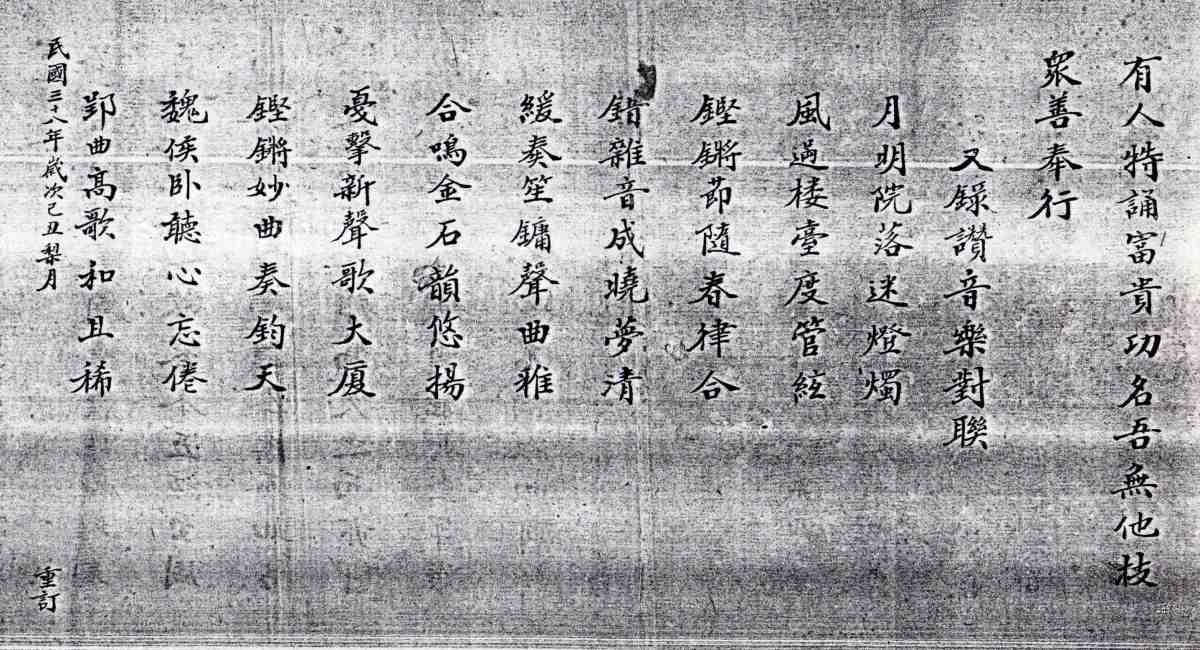 有人特誦富貴功名吾無他技
眾善奉行
又錄讚音樂對聯
月明院落迷燈燭
風過楼臺度管絃
鏗鏘節隨春律合
錯雜音成曉夢清
緩奏笙鏞聲曲雅
合鳴金石韻悠揚
戞擊新聲歌大厦
鏗鏘妙曲奏鈞天
魏侯卧聽心忘倦
郢曲高歌和且稀
民國三十八年歲次己丑梨月
重訂